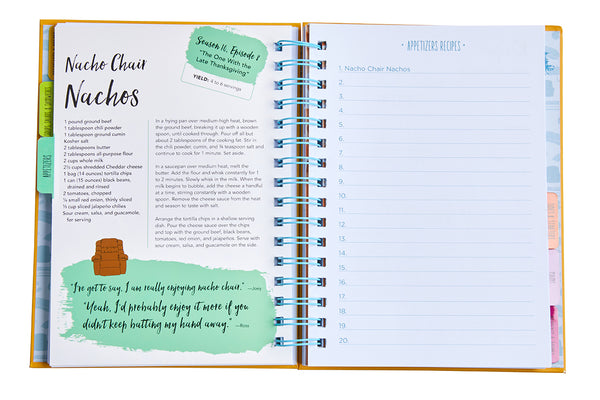 Season 16, Episode 8
"The One With the
Late Thanksgiving"
YIELD: 4 to 6 servings
Nacho Chair
Nachos
1 pound ground beef
1 tablespoon chili powder
1 tablespoon ground cumin
Kosher salt
2 tablespoons butter
2 tablespoons all-purpose flour
2 cups whole milk
2½ cups shredded Cheddar cheese
1 bag (14 ounces) tortilla chips
1 can (15 ounces) black beans,
drained and rinsed
2 tomatoes, chopped
¼ small red onion, thinly sliced
⅓ cup sliced jalapeño chilies
Sour cream, salsa, and guacamole,
for serving
In a frying pan over medium-high heat, brown
the ground beef, breaking it up with a wooden
spoon, until cooked through. Pour off all but
about 2 tablespoons of the cooking fat. Stir in
the chili powder, cumin, and ¾ teaspoon salt and
continue to cook for 1 minute. Set aside.
In a saucepan over medium heat, melt the
butter. Add the flour and whisk constantly for 1
to 2 minutes. Slowly whisk in the milk. When the
milk begins to bubble, add the cheese a handful
at a time, stirring constantly with a wooden
spoon. Remove the cheese sauce from the heat
and season to taste with salt.
Arrange the tortilla chips in a shallow serving
dish. Pour the cheese sauce over the chips
and top with the ground beef, black beans,
tomatoes, red onion, and jalapeños. Serve with
sour cream, salsa, and guacamole on the side.
"I've got to say, I am really enjoying nacho chair." —Joey
"Yeah, I'd probably enjoy it more if you
didn't keep batting my hand away." —Ross
APPETIZERS
APPETIZERS RECIPES
1. Nacho Chair Nachos
2.
3.
4.
5.
6.
7.
8.
9.
10.
11.
12.
13.
14.
15.
16.
17.
18.
19.
20.